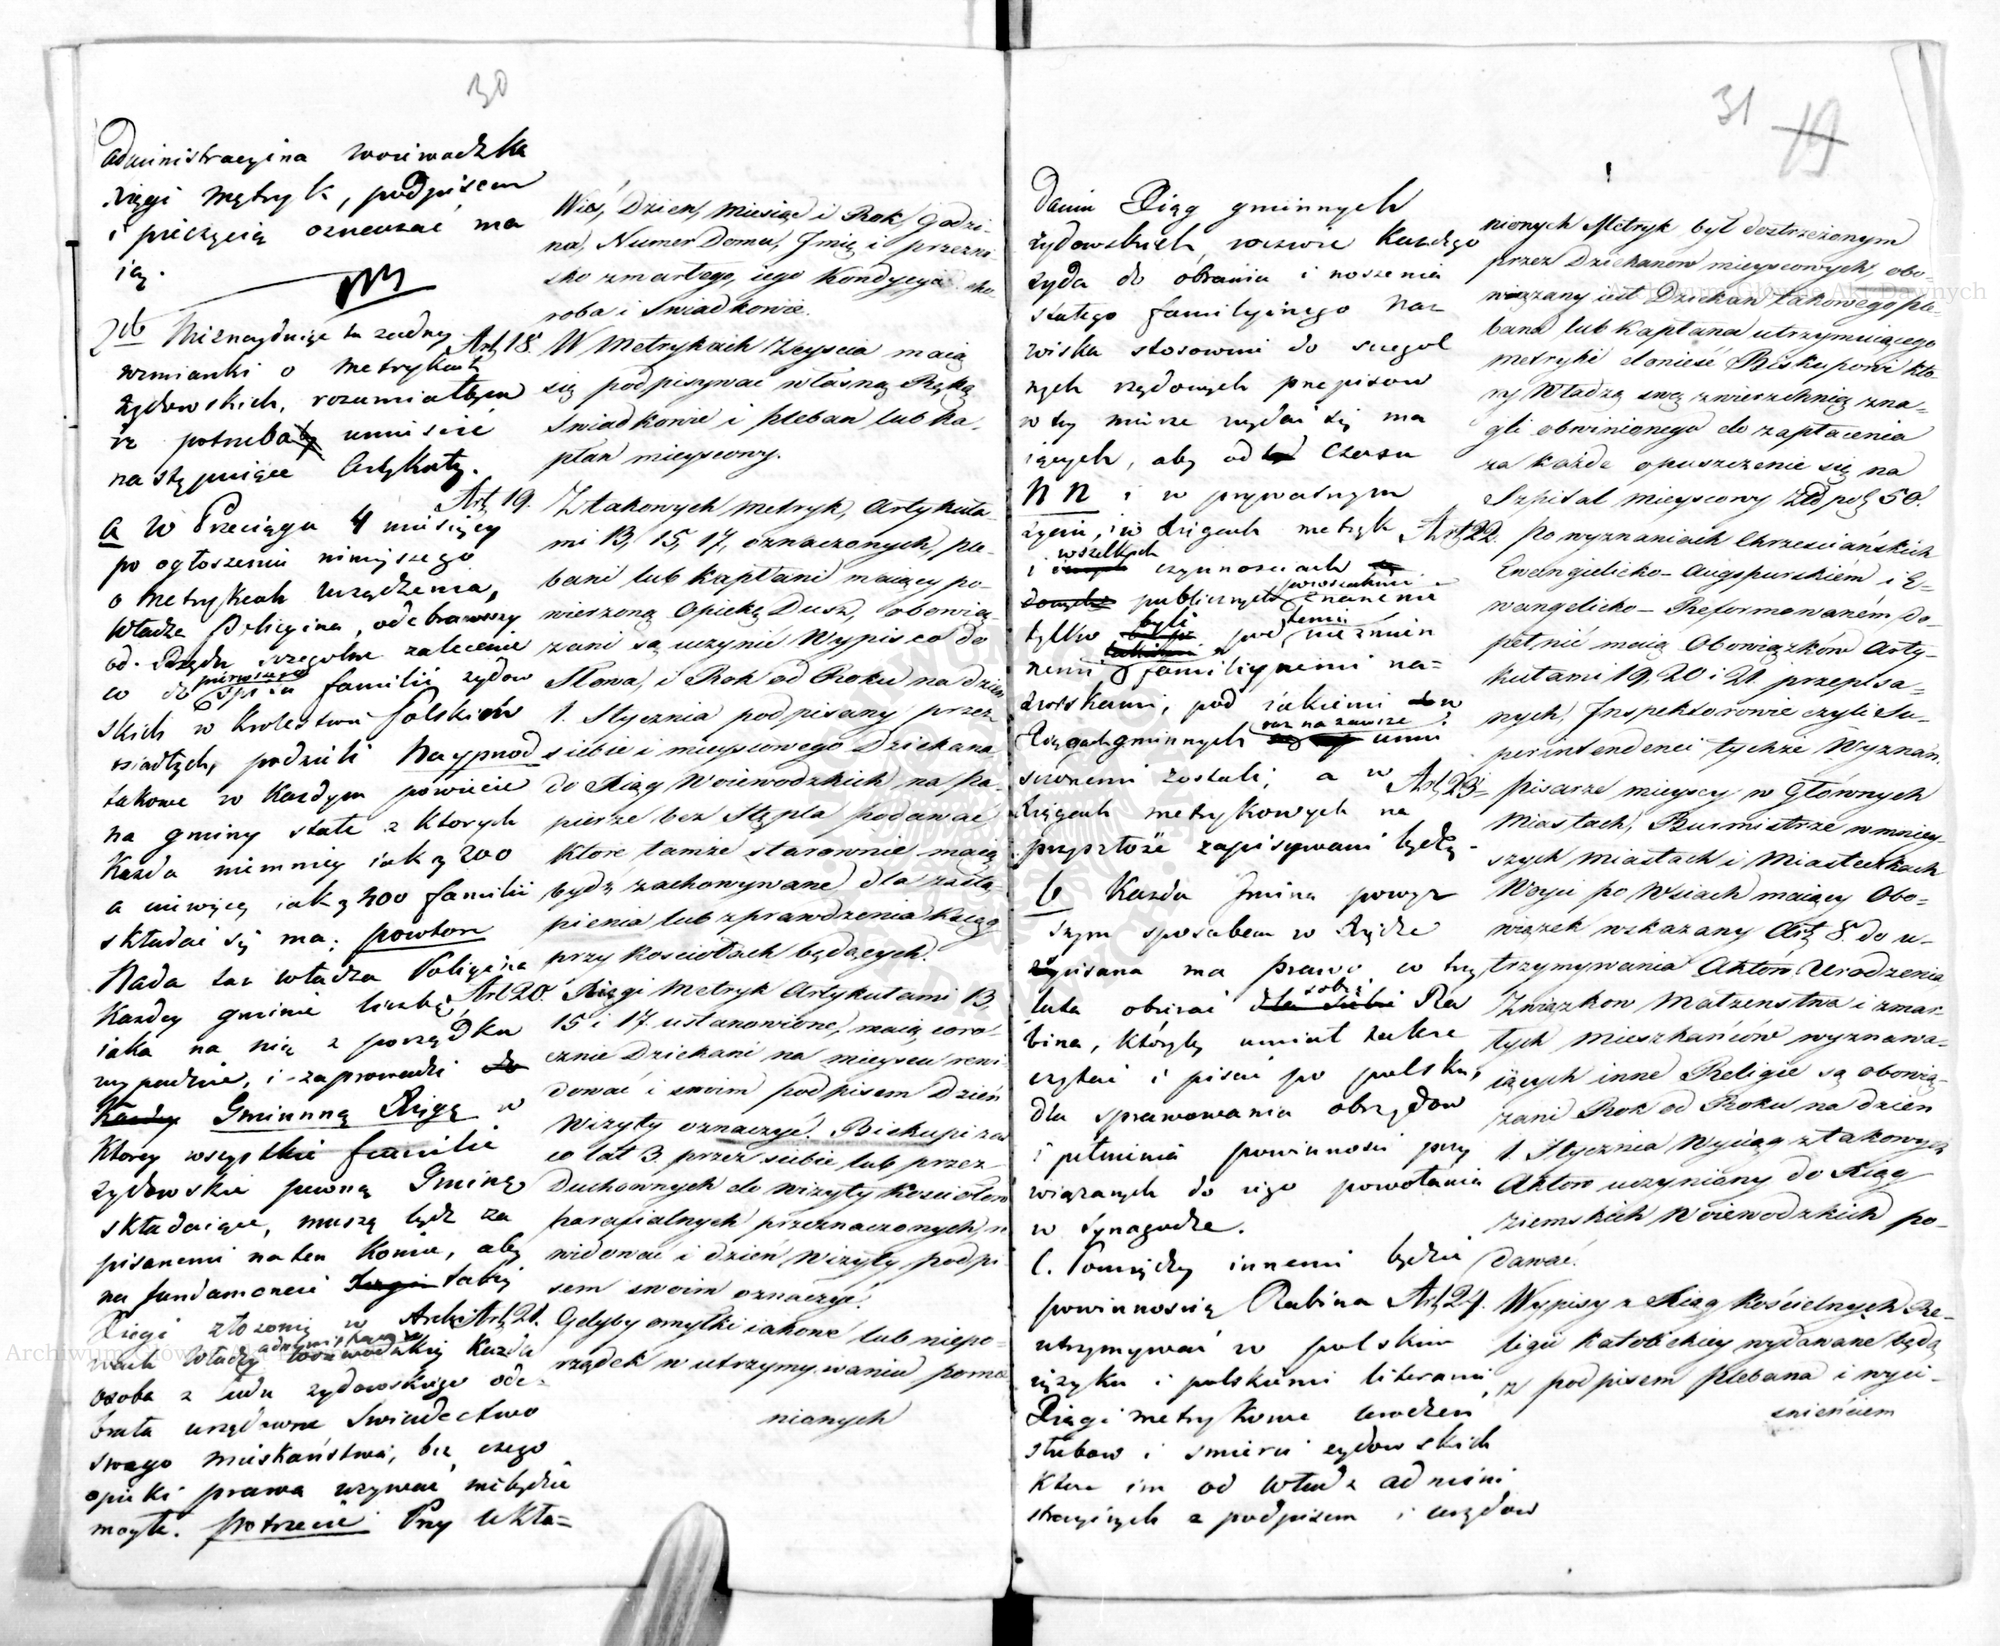 30
administracyina woiewodzka
xięgi metryk, podpisem
i pieczęcią oznaczać ma
ią.
2do Nieznayduiąc tu żadney
wzmianki o metrykach
żydowskich, rozumiałbym
iż potrzeba umieścić
następuiące Artykuły.
a W Przeciągu 4 miesięcy
po ogłoszeniu ninieyszego
o metrykach urządzenia,
Władza Policyina, odebrawszy
od Rządu szczegolne zalecenie
co do spisu familii żydow
skich w Krolestwie Polskiem
osiadłych, podzieli Nayprzod
takowe w każdym powiecie
na gminy stałe z ktorych
Każda niemniey iak z 200
a niewięcey iak z 400 familii
składać się ma; powtore
Nada taż władza Policyina
Każdey gminie liczbę,
iaka na nią z porządku
wypadnie, i zaprowadzi do
Każdey Gminną Xięgę w
Ktorey wszystkie familie
żydowskie pewną Gminę
składaiące, muszą bydź za
pisanemi na ten koniec, aby
na fundamencie takiey
Xięgi złożoney w Archi
wach Władzy administracyi
woiewodzkiey każda
osoba z ludu żydowskiego ode-
brała urzędowne Swiadectwo
swego mieszkaństwa, bez czego
opieki prawa używać niebędzie
mogła. potrzecie Przy ukła=
Wieś, Dzień, Miesiąc i Rok, godzi-
na, Numer Domu, Imię i przezwi-
sko zmarłego, iego Kondycya cho
roba i Swiadkowie.
Art. 18. W Metrykach Zeyscia maią
się podpisywać własną Ręką
Swiadkowie i pleban lub Ka-
płan mieyscowy.
Art. 19. Z takowych metryk, Artykuła-
mi 13, 15, 17, oznaczonych, ple-
bani lub kapłani maiący po
wierzoną Opiekę Dusz, obowią-
zani są uczynić Wypis co do
Słowa, i Rok od Roku na dzień
1. Stycznia podpisany przez
siebie i mieyscowego Dziekana
do Xiąg Woiewodzkich na Pa-
pierze bez Stępla podawać
które tamże starownie maią
bydź zachowywane dla zastą-
pienia lub sprawdzenia Xiąg
przy Kosciołach będących.
Art. 20. Xięgi Metryk Artykułami 13,
15 i 17. ustanowione, maią coro-
cznie Dziekani na mieyscu rewi-
dować i swoim podpisem Dzień
Wizyty oznaczyć. Biskupi zaś
co lat 3. przez siebie lub przez
Duchownych do Wizyty Kosciołow
parafialnych przeznaczonych, re
widować i dzień Wizyty podpi-
sem swoim oznaczyć.
Art. 21. Gdyby omyłki iakowe lub niepo-
rządek w utrzymywaniu pomie
nianych
31 19
daniu Xiąg gminnych
żydowskich, wezwie Każdego
żyda do obrania i noszenia
stałego familyinego Naz
wiska stosownie do szczegol
nych rządowych przepisow
w tey mierze wydać się ma
iących, aby od Czasu
NN i w prywatnym
życiu, i w Xięgach metryk
i wszelkich czynnościach
publicznych
tylko byli pod temi niezmien
nemi familiynemi na-
zwiskami, pod iakiemi w
Xięgach gminnych raz na zawsze umie
szczonemi zostali; a w
Xięgach metrykowych na
przyszłość zapisywani będą.
b Każda Gmina powyż
szym sposobem w Xiędze
spisana ma prawo, co trzy
lata obierać sobie Ra
bina, któryby umiał także
czytać i pisać po polsku,
dla sprawowania obrzędow
i pełnienia powinności przy
wiązanych do iego powołania
w Synagodze.
c. Pomiędzy innemi będzie
powinnością Rabina
utrzymywać w polskim
ięzyku i polskiemi literami
Xięgi metrykowe urodzeń
slubow i smierci żydowskich
Które im od władz admini
stracyinych z podpisem i urzędow
nionych Metryk był dostrzeżonym
przez Dziekanow mieyscowych, obo-
wiązany iest Dziekan takowego ple-
bana lub Kapłana utrzymuiącego
metryki donieść Biskupowi kto-
ry Władzą swą zwierzchnią zna-
gli obwinionego do zapłacenia
za każde opuszczenie się na
Szpital mieyscowy Złp. 50.
Art. 22. Po wyznaniach Chrześciańskich
Ewangielicko-Augspurskiém i E-
wangelicko-Reformowaném Do-
pełnić maią Obowiązków Arty-
kułami 19, 20 i 21. przepisa-
nych, Inspektorowie czyli Su-
perintendenci tychże Wyznań.
Art. 23. pisarze mieyscy w Głównych
Miastach, Burmistrze w mniey-
szych miastach i Miasteczkach
Woyci po Wsiach maiący Obo-
wiązek wskazany Art. 8. do u-
trzymywania Aktow Urodzenia
Związkow Małżenstwa i zmar-
łych mieszkańców wyznawa-
iących inne Religie są obowią-
zani Rok od Roku na dzień
1. Stycznia Wyciąg z takowych
Aktow uczyniony do Xiąg
ziemskich Woiewodzkich po-
dawać.
Art. 24. Wypisy z Xiąg Kościelnych Re-
ligii Katolickiey wydawane będą
z podpisem plebana i wyci-
śnieńciem
Archiwum Główne Akt Dawnych